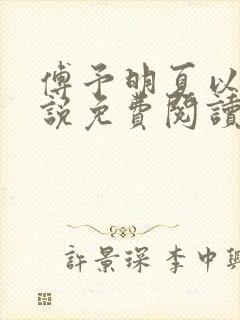 傅予明夏以
說免費閱讀
許景琛 李中興